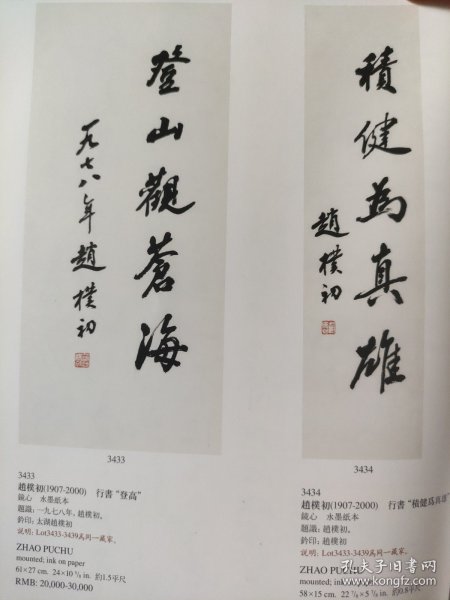 登山觀蒼海
一九七八年 趙樸初
3433
3433
趙樸初(1907-2000) 行書“登高”
鏡心 水墨紙本
題識:一九七八年,趙樸初。
鈐印:太湖趙樸初
說明:Lot3433-3439爲同一藏家。
ZHAO PUCHU
mounted; ink on paper
61×27 cm. 24×10 ⅝ in. 約1.5平尺
RMB: 20,000-30,000
積健為真雄
趙樸初
3434
3434
趙樸初(1907-2000) 行書“積健爲真雄”
鏡心 水墨紙本
題識:趙樸初。
鈐印:趙樸初
說明:Lot3433-3439爲同一藏家。
ZHAO PUCHU
mounted; ink
58×15 cm. 22 ⅞×5 ⅞ in. 約0.8平尺
孔夫子旧书网